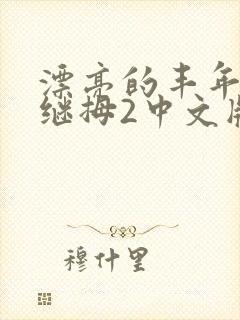 漂亮的丰年
继拇2中文版
穆什里